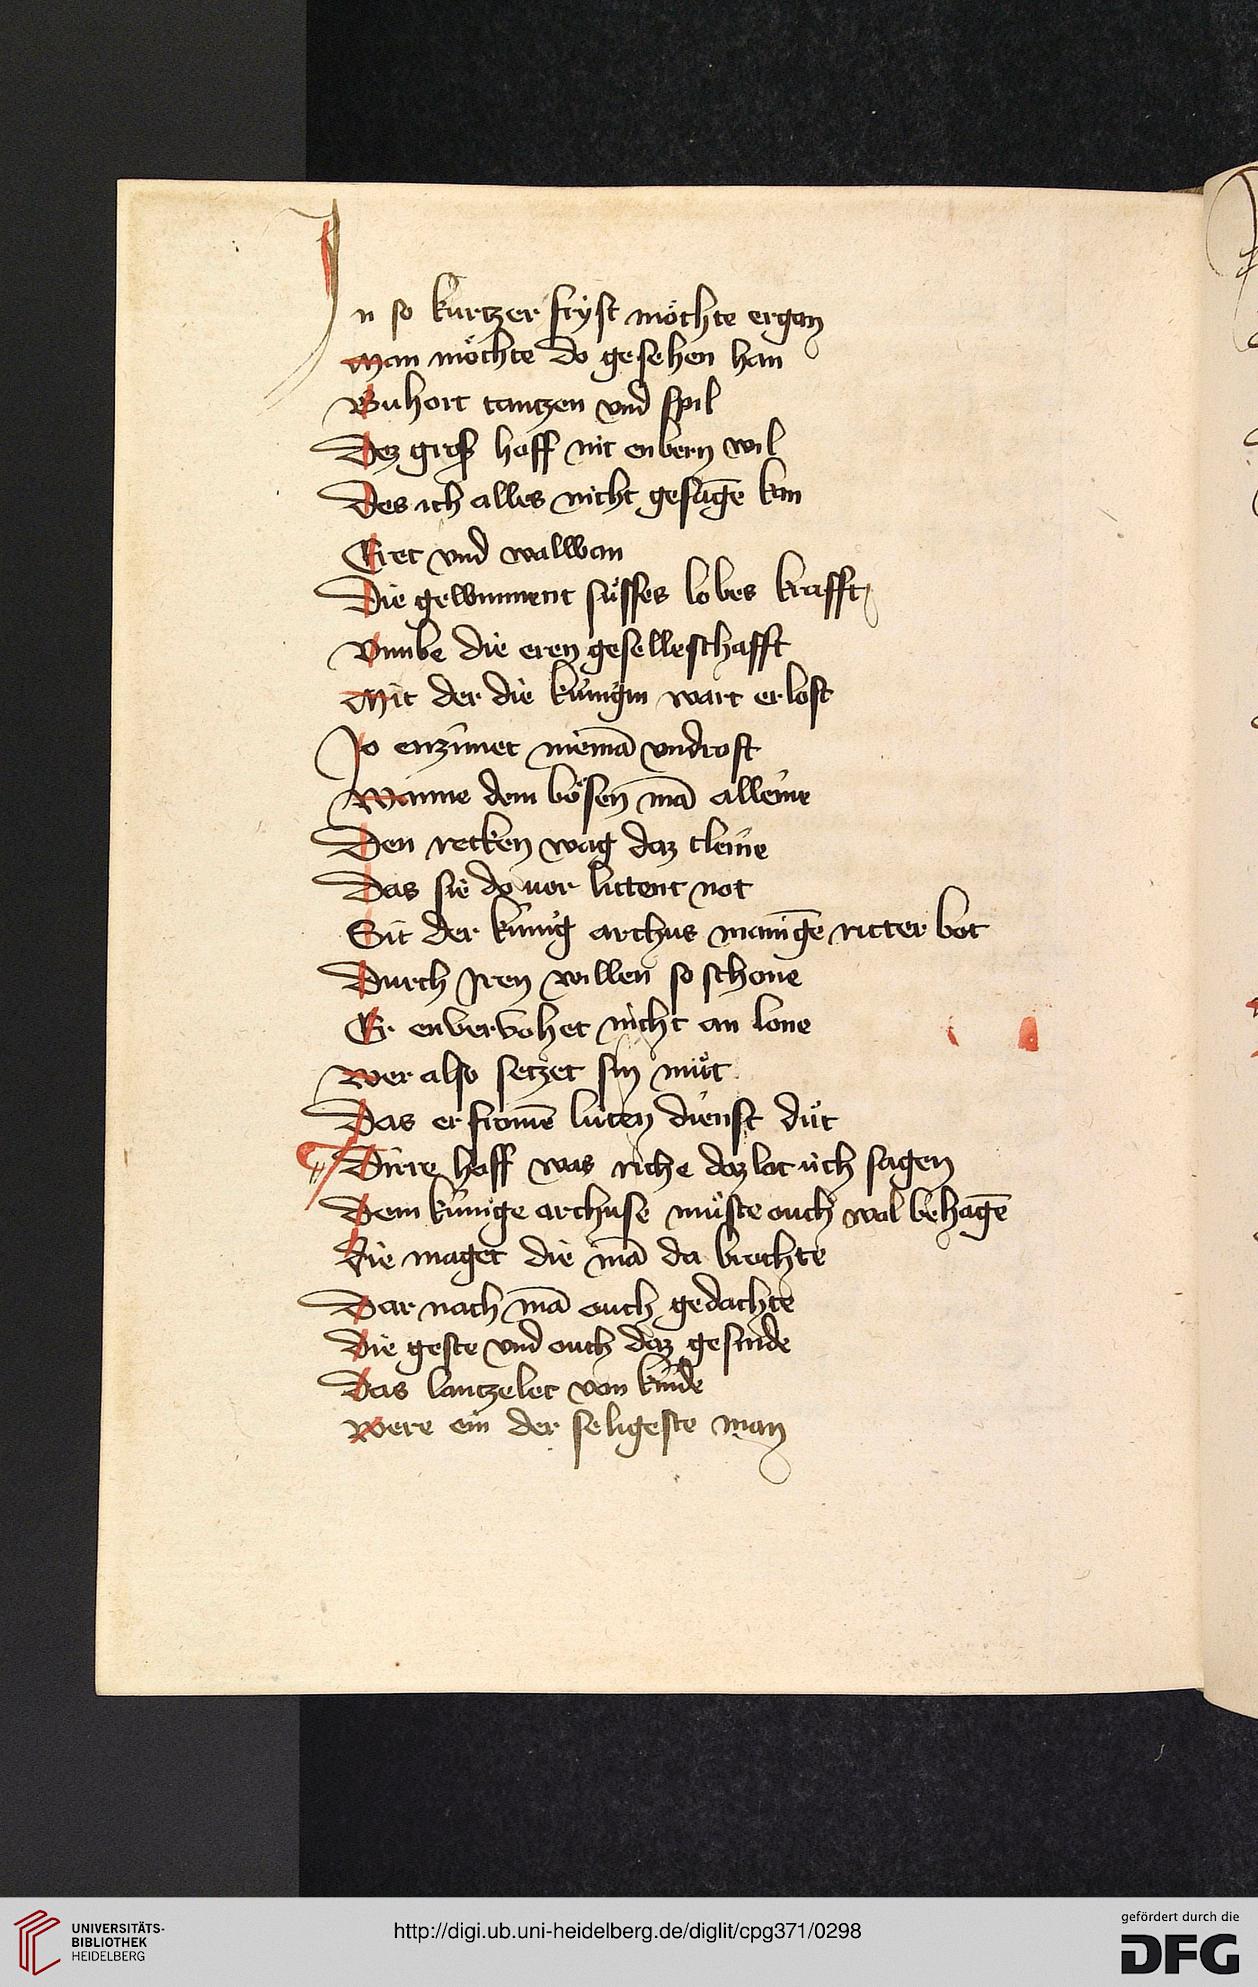 In so kurtzer fryst möchte ergan
Man möchte do gesehen han
Buhort tantzen vnd spil
Dez groß hoff nit enbern wil
Des ich alles nicht gesagē kan
Eret vnd walwan
Die gewunnent süsses lobes krafft
Vmbe die eren geselleschafft
Mit der die künigin wart erlost
Jo enzimet niemā vndrost
Wanne dem bösen mā alleine
Den recken wag daz cleine
Das sie do vor littent not
Sit der künig arthus manigē ritter bot
Durch Jren willen so schone
Er envervohet nicht an lone
Wer also setzet sin müt
Das er fromē lüten dienst düt
Dirre hoff was riche daz lot üch sagen
Dem künige arthuse müste ouch wol behagē
Die maget die mā da brechte
Dar nach mā ouch gedachte
Die geste vnd ouch daz gesinde
Das lantzelet von kinde
Were ein der seligeste man
UNIVERSITÄTS-
BIBLIOTHEK
HEIDELBERG
http://digi.ub.uni-heidelberg.de/diglit/cpg371/0298
gefördert durch die
DFG